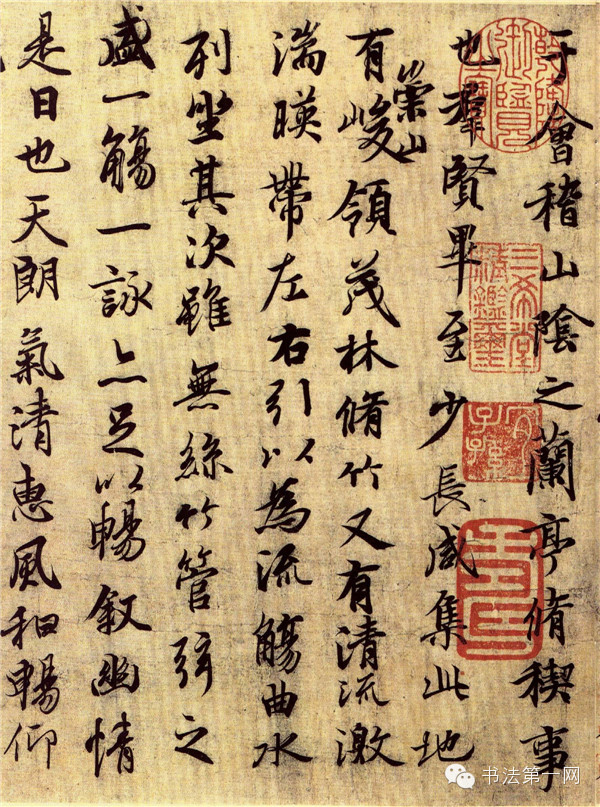 于會稽山陰之蘭亭脩稧事
也羣賢畢至少長咸集此地
有崇山峻領茂林脩竹又有清流激
湍暎帶左右引以為流觴曲水
列坐其次雖無絲竹管弦之
盛一觴一詠亦足以暢叙幽情
是日也天朗氣清惠風和暢仰
三希堂精鑑璽
宜子孫
书法第一网